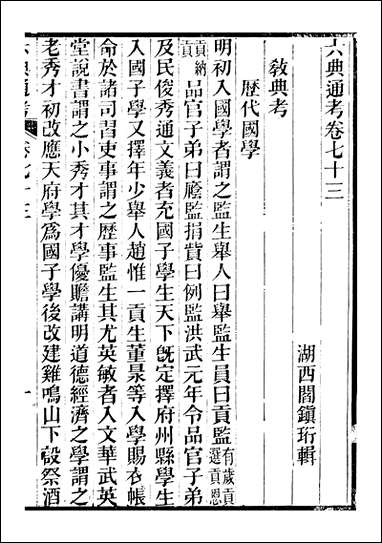 六典通考卷七十三
湖西閻鎭珩輯
敎典考
歷代國學
明初入國學者謂之監生舉人曰舉監生員曰貢監有歲貢選貢恩
貢納貢品官子弟曰廕監捐貲曰例監洪武元年令品官子弟
及民俊秀通文義者充國子學生天下旣定擇府州縣學生
入國子學又擇年少舉人趙惟一貢生董㬌等入學賜衣帳
命於諸司習吏事謂之歷事監生其尤英敏者入文華武英
堂說書謂之小秀才其才學優贍講明道德經濟之學謂之
老秀才初改應天府學爲國子學後改建雞鳴山下設祭酒
六典通考
卷七十三
一